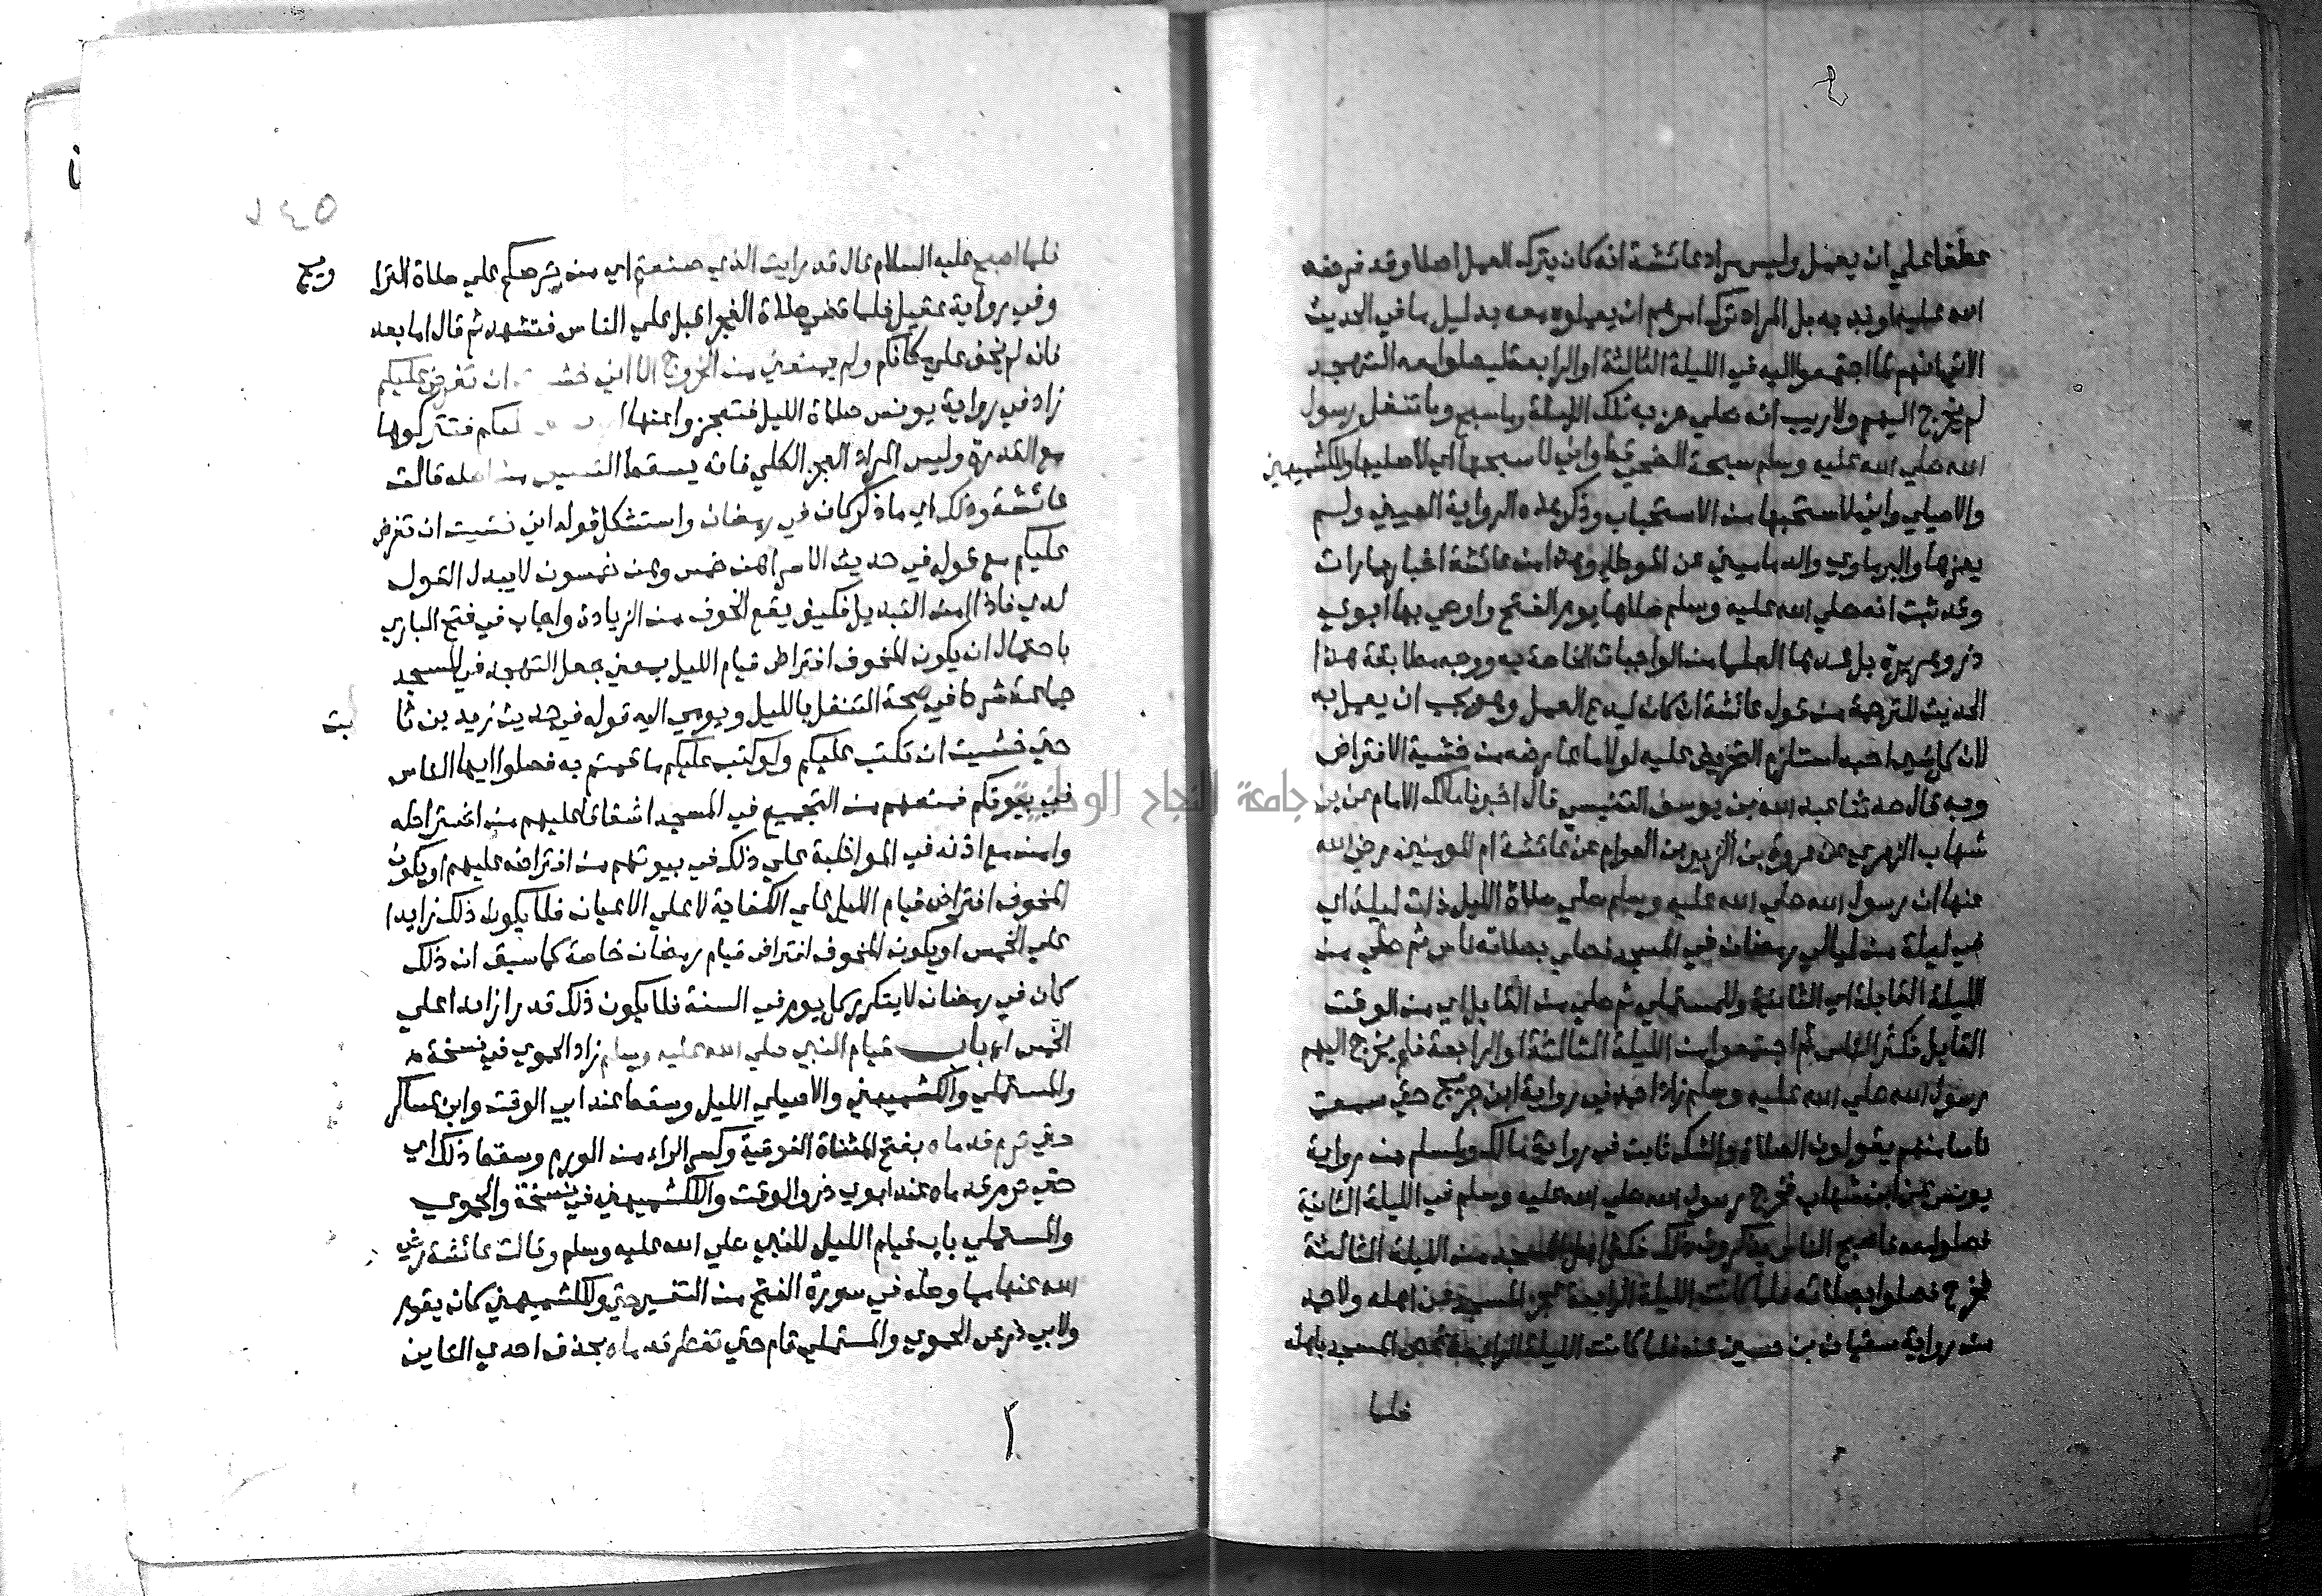 عطفا علي ان يعمل وليس مراد عائشة انه كان يترك العمل اصلا وقد فرضه
الله عليه او ندبه بل المراد ترك امرهم ان يعملوه معه بدليل ما في الحديث
الاتي انهم لما اجتمعوا اليه في الليلة الثالثة او الرابعة ليصلوا معه التهجد
لم يخرج اليهم ولا ريب انه صلي حزبه تلك الليلة وما سبح وما تنفل رسول
الله صلي الله عليه وسلم سبحة الضحي قط واني لاسبحها اي لاصليها وللكشميهني
والاصيلي واني لاستحبها من الاستحباب وذكر هذه الرواية العيني ولم
يعزها والبرماوي والدماميني عن الموطا وهذا من عائشة اخبار بما رات
وقد ثبت انه صلي الله عليه وسلم صلاها يوم الفتح واوصي بها ابوي
ذر وهريرة بل عدها العلما من الواجبات الخاصة به ووجه مطابقة هذا
الحديث للترجمة من قول عائشة ان كان ليدع العمل وهو يحب ان يعمل به
لان كل شي احبه استلزم التحريض عليه لولا ما عارضه من خشية الافتراض
وبه قال حدثنا عبد الله بن يوسف التنيسي قال اخبرنا مالك الامام عن بن
شهاب الزهري عن عروة بن الزبير بن العوام عن عائشة ام المومنين رضي الله
عنها ان رسول الله صلي الله عليه وسلم صلي صلاة الليل ذات ليلة اي
في ليلة من ليالي رمضان في المسجد فصلي بصلاته ناس ثم صلي من
الليلة القابلة اي الثانية وللمستملي ثم صلي من القابل اي من الوقت
القابل فكثر الناس ثم اجتمعوا من الليلة الثالثة او الرابعة فلم يخرج اليهم
رسول الله صلي الله عليه وسلم زاد احمد في رواية ابن جريج حتي سمعت
ناسا منهم يقولون الصلاة والشك ثابت في رواية مالك ولمسلم من رواية
يونس عن ابن شهاب فخرج رسول الله صلي الله عليه وسلم في الليلة الثانية
فصلوا معه فاصبح الناس يذكرون ذلك فكثر اهل المسجد من الليلة الثالثة
فخرج فصلوا بصلاته فلما كانت الليلة الرابعة عجز المسجد عن اهله ولاحمد
من رواية سفيان بن حسين عنه فلما كانت الليلة الرابعة غص المسجد باهله
فلما
فلما اصبح عليه السلام قال قد رايت الذي صنعتم اي من حرصكم علي صلاة الترا ويح
وفي رواية عقيل فلما قضي صلاة الفجر اقبل علي الناس فتشهد ثم قال اما بعد
فانه لم يخف علي مكانكم ولم يمنعني من الخروج الا اني ان تفرض عليكم
زاد في رواية يونس صلاة الليل فتعجزوا عنها فتتركوها
مع القدرة وليس المراد العجز الكلي فانه يسقط من اصله قالت
عائشة وذلك اي ما ذكر كان في رمضان واستشكل قوله اني خشيت ان تفرض
عليكم مع قوله في حديث الاسرا هن خمس وهن خمسون لا يبدل القول
لدي فاذا امن التبديل فكيف يقع الخوف من الزيادة واجاب في فتح الباري
باحتمال ان يكون المخوف افتراض قيام الليل بمعني جعل التهجد في المسجد
جماعة شرطا في صحة التنفل بالليل ويومي اليه قوله في حديث زيد بن ثا بت
حتي خشيت ان تكتب عليكم ولو كتب عليكم ما قمتم به فصلوا ايها الناس
في بيوتكم فمنعهم من التجميع في المسجد اشفاقا عليهم من اشتراطه
وامن مع اذنه في المواظبة علي ذلك في بيوتهم من افتراضه عليهم او يكون
المخوف افتراض قيام الليل علي الكفاية لا علي الاعيان فلا يكون ذلك زايدا
علي الخمس او يكون المخوف افتراض قيام رمضان خاصة كما سبق ان ذلك
كان في رمضان لا يتكرر كل يوم في السنة فلا يكون ذلك قدرا زايدا علي
الخمس اه باب قيام النبي صلي الله عليه وسلم زاد الحموي في نسخة
والمستملي والكشميهني والاصيلي الليل وسقط عند ابي الوقت وابن عساكر
حتي ترم قدماه بفتح المثناة الفوقية وكسر الراء من الورم وسقط ذلك اي
حتي ترم قدماه عند ابوي ذر والوقت وللكشميهني في نسخة والحموي
والمستملي باب قيام الليل للنبي صلي الله عليه وسلم وقالت عائشة رضي
الله عنها مما وصله في سورة الفتح من التفسير حتي وللكشميهني كان يقوم
ولابي ذر عن الحموي والمستملي قام حتي تفطر قدماه بحذف احدي التاين
جامعة النجاح الوطنية